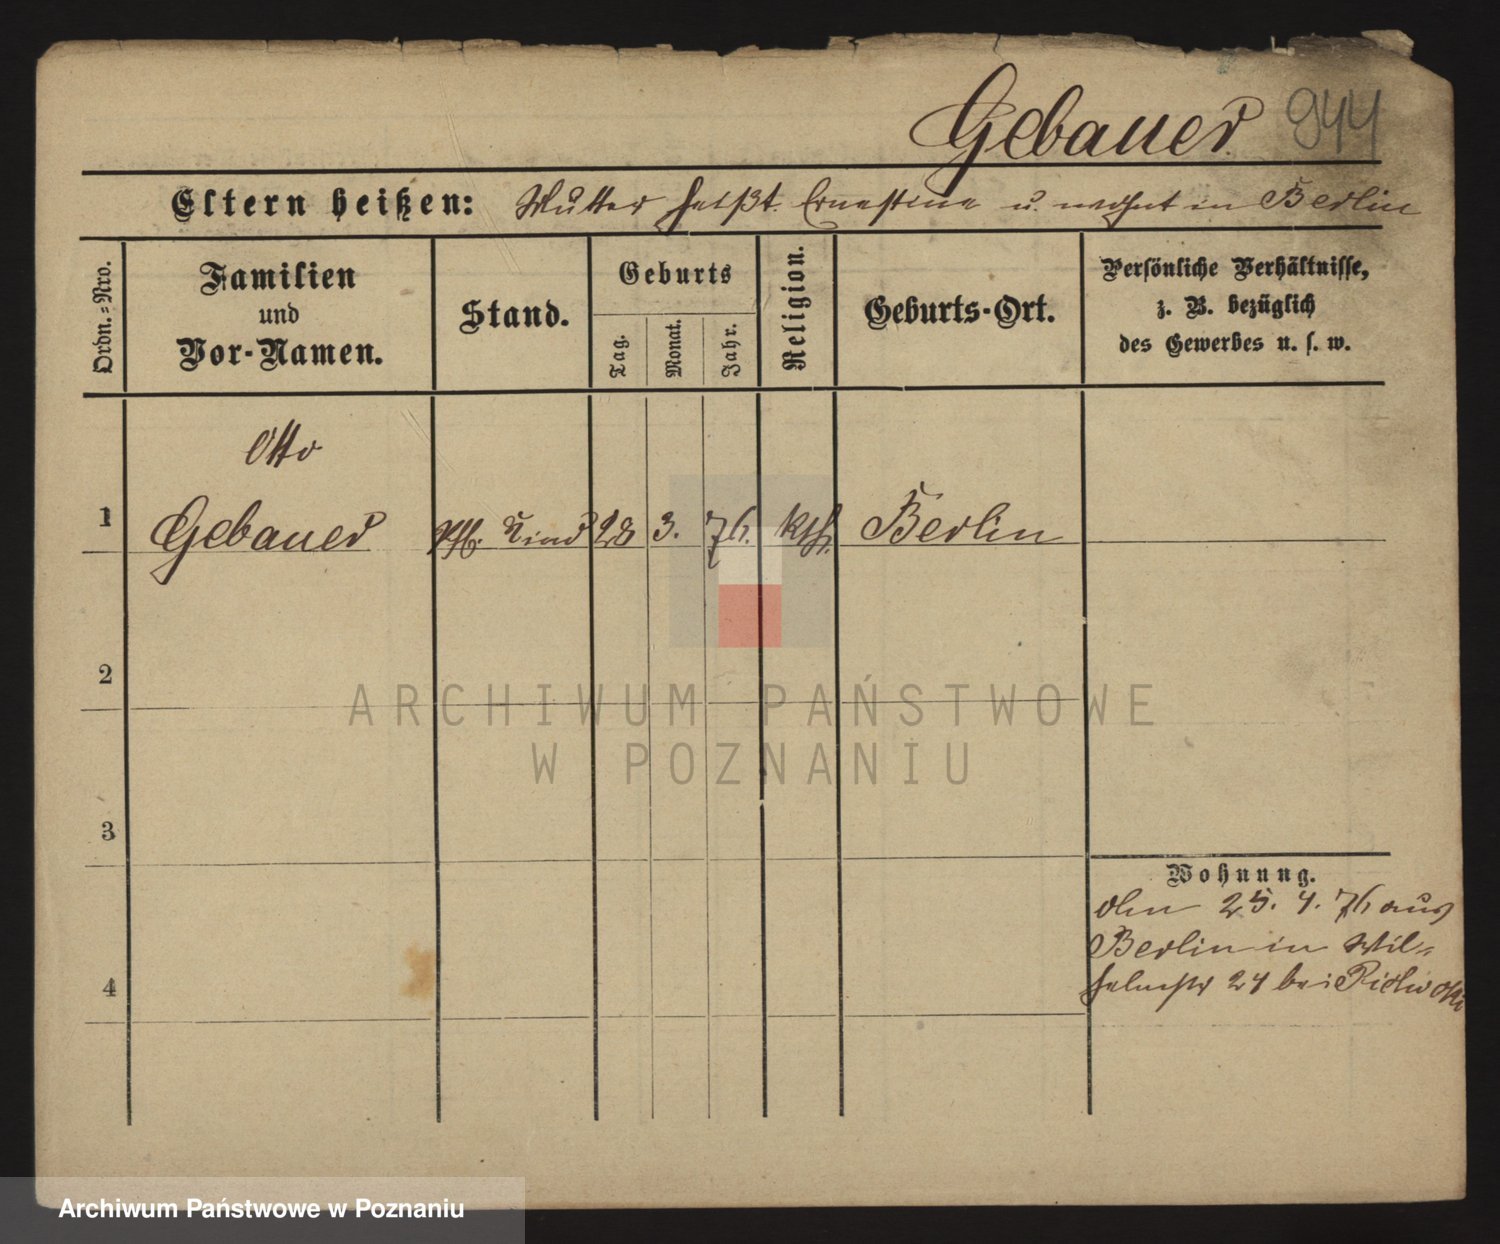 Gebauer 944
Eltern heißen: Mutter heißt Ernestine u. wohnt in Berlin
Ordn.-Nro.
Familien
und
Vor-Namen.
Stand.
Geburts
Tag.
Monat.
Jahr.
Religion.
Geburts-Ort.
Persönliche Verhältnisse,
z. B. bezüglich
des Gewerbes u. s. w.
Otto
1 Gebauer Kind 28 3. 76. kth. Berlin
2
ARCHIWUM PAŃSTWOWE
W POZNANIU
3
Wohnung.
25. 4. 76 aus
Berlin in Wil-
helmstr 24 bei
4
Archiwum Państwowe w Poznaniu